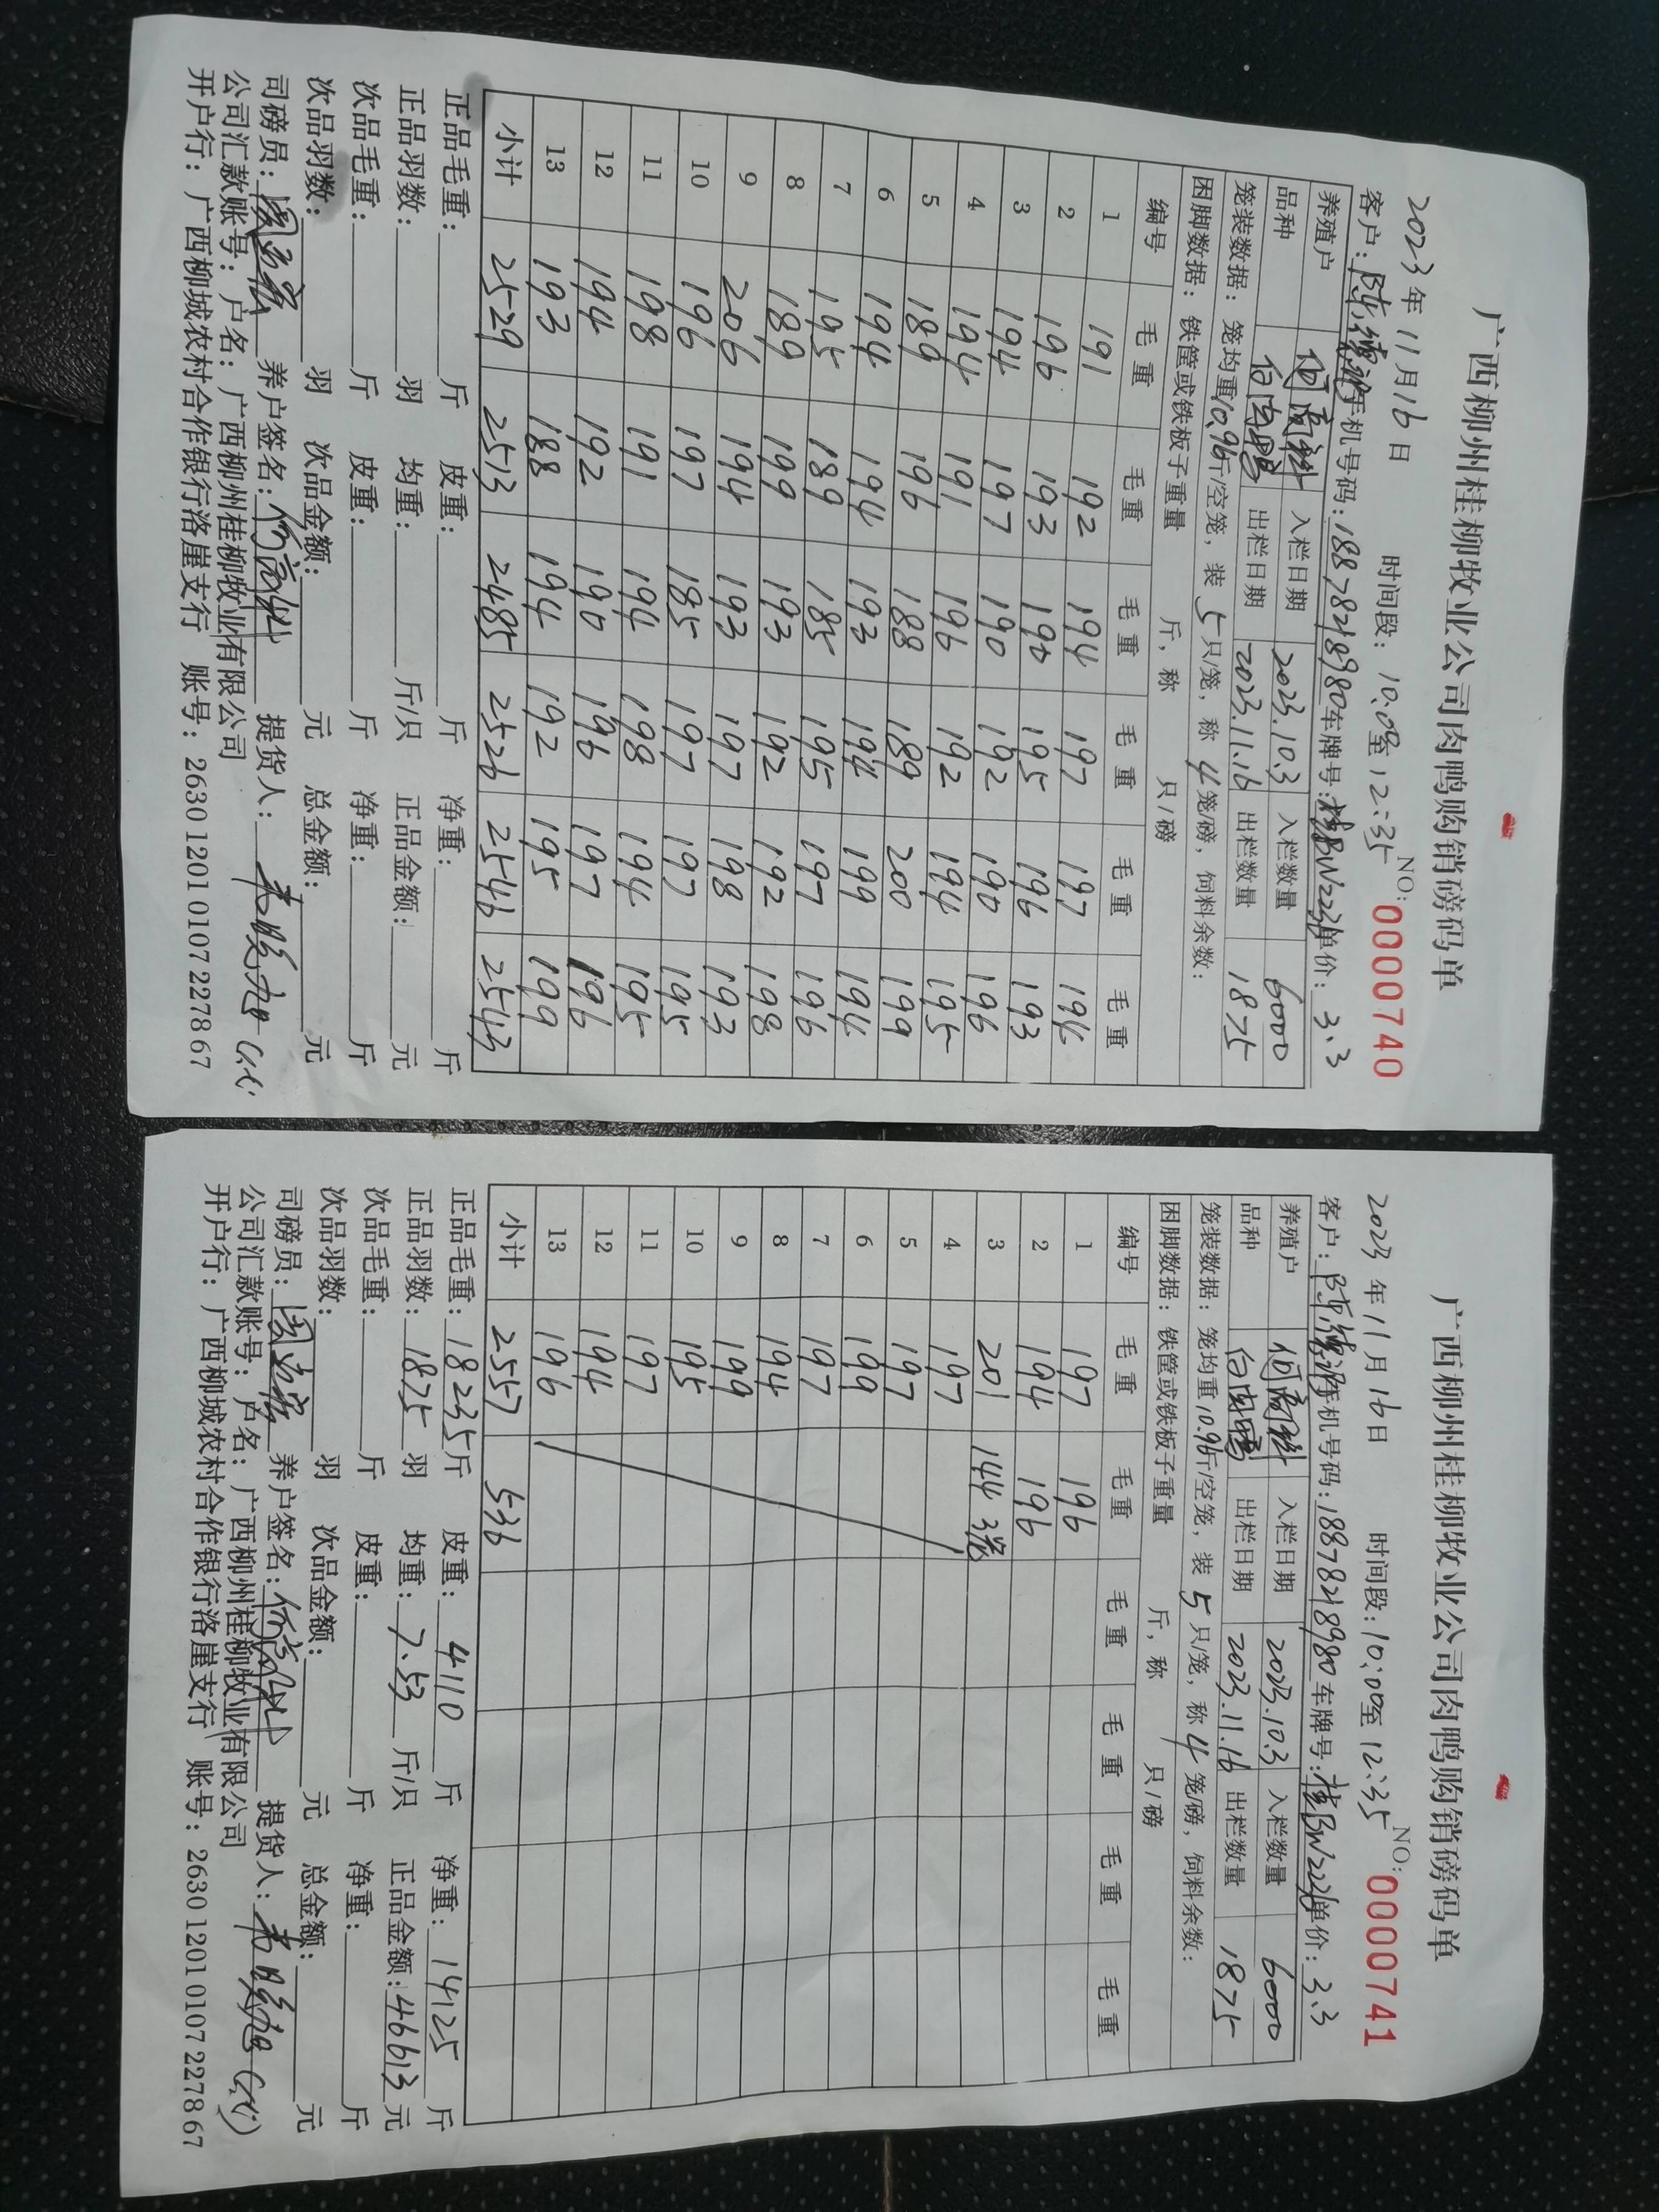 广西柳州桂柳牧业公司肉鸭购销磅码单
2023年11月16日 时间段：10:00至12:35 NO: 0000740
客户： 手机号码：18878218980 车牌号： 单价：3.3
养殖户 入栏日期 2023.10.3 入栏数量 6000
品种 出栏日期 2023.11.16 出栏数量 1875
笼装数据：笼均重10.96斤/空笼，装5只/笼，称4笼/磅，饲料余数：
困脚数据：铁筐或铁板子重量 斤，称 只/磅
编号 毛重 毛重 毛重 毛重 毛重 毛重
1 191 192 194 197 197 196
2 196 193 190 195 196 193
3 194 197 190 192 190 196
4 194 191 196 192 194 195
5 189 196 188 189 200 199
6 194 194 193 194 199 194
7 195 189 185 195 197 196
8 189 199 193 192 192 198
9 206 194 193 197 198 193
10 196 197 185 197 197 195
11 198 191 194 198 194 195
12 194 192 190 196 197 196
13 193 188 194 192 195 199
小计 2529 2513 2485 2526 2546 2543
正品毛重： 斤 皮重： 斤 净重： 斤
正品羽数： 羽 均重： 斤/只 正品金额： 元
次品毛重： 斤 皮重： 斤 净重： 斤
次品羽数： 羽 次品金额： 元 总金额： 元
司磅员： 养户签名： 提货人：
公司汇款账号：户名：广西柳州桂柳牧业有限公司
开户行：广西柳城农村合作银行洛崖支行 账号：2630 1201 0107 2278 67
广西柳州桂柳牧业公司肉鸭购销磅码单
2023年11月16日 时间段：10:00至12:35 NO: 0000741
客户： 手机号码：18878218980 车牌号： 单价：3.3
养殖户 入栏日期 2023.10.3 入栏数量 6000
品种 出栏日期 2023.11.16 出栏数量 1875
笼装数据：笼均重10.96斤/空笼，装5只/笼，称4笼/磅，饲料余数：
困脚数据：铁筐或铁板子重量 斤，称 只/磅
编号 毛重 毛重 毛重 毛重 毛重 毛重
1 197 196
2 194 196
3 201 144 3笼
4 197
5 197
6 199
7 197
8 194
9 199
10 195
11 197
12 194
13 196
小计 2557 536
正品毛重：18235斤 皮重：4110斤 净重：14125斤
正品羽数：1875羽 均重：7.53斤/只 正品金额：46613元
次品毛重： 斤 皮重： 斤 净重： 斤
次品羽数： 羽 次品金额： 元 总金额： 元
司磅员： 养户签名： 提货人：
公司汇款账号：户名：广西柳州桂柳牧业有限公司
开户行：广西柳城农村合作银行洛崖支行 账号：2630 1201 0107 2278 67